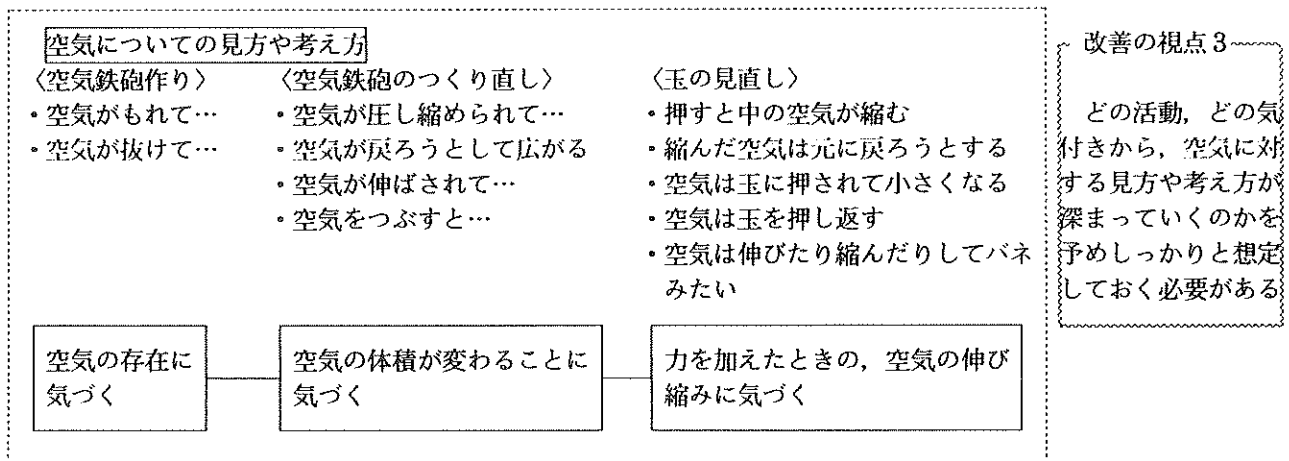 空気についての見方や考え方
〈空気鉄砲作り〉
・空気がもれて…
・空気が抜けて…
〈空気鉄砲のつくり直し〉
・空気が圧し縮められて…
・空気が戻ろうとして広がる
・空気が伸ばされて…
・空気をつぶすと…
〈玉の見直し〉
・押すと中の空気が縮む
・縮んだ空気は元に戻ろうとする
・空気は玉に押されて小さくなる
・空気は玉を押し返す
・空気は伸びたり縮んだりしてバネ
みたい
空気の存在に
気づく
空気の体積が変わることに
気づく
力を加えたときの，空気の伸び
縮みに気づく
改善の視点3
どの活動，どの気
付きから，空気に対
する見方や考え方が
深まっていくのかを
予めしっかりと想定
しておく必要がある